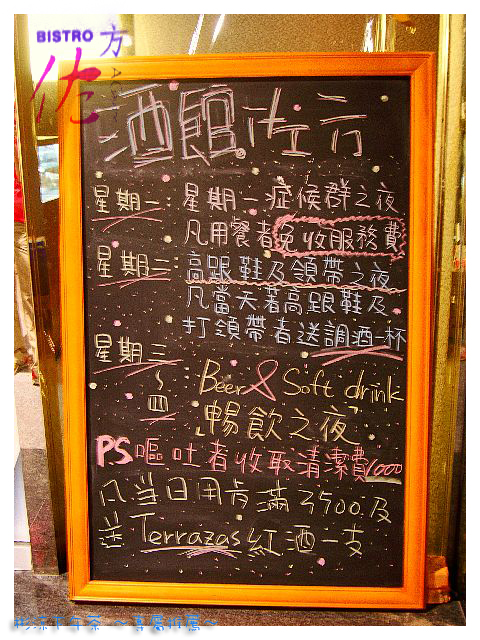 BISTRO 方
佐
酒館佐方
星期一: 星期一症候群之夜
凡用餐者免收服務費
星期二: 高跟鞋及領帶之夜
凡當天著高跟鞋及
打領帶者送調酒一杯
星期三
～四
Beer & Soft drink
「暢飲之夜」
PS嘔吐者收取清潔費1000
凡当日用肯滿3500.及
送 Terrazas紅酒一支